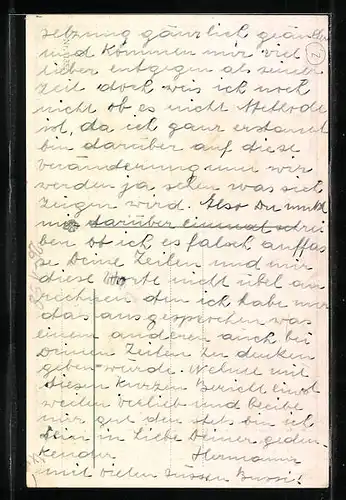 setzung gänzlich geändert
und kommen mir viel
lieber entgegen als seiner
Zeit doch weis ich noch
nicht ob es nicht Methode
ist, da ich ganz erstaunt
bin darüber auf diese
Veränderung nun wir
werden ja sehen was sich
zeigen wird. Also Du mußt
mir darüber einmal schrei
ben ob ich es falsch auffas
se Deine Zeilen und mir
diese Worte nicht übel an
rechnen den ich habe nur
das ausgesprochen was
einem anderen auch bei
Deinen Zeilen zu denken
geben würde. Nehme mit
diesen kurzen Bericht einst
weilen vorlieb und bleibe
mir gut den stets bin ich
Dein in Liebe Deiner geden
kender Hermann
mit vielen süssen Bussi!
2